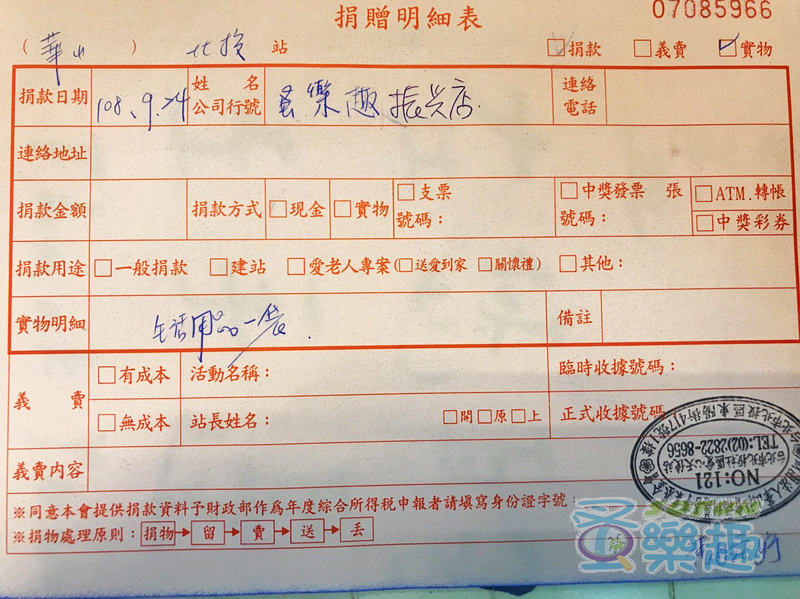 捐贈明細表
07085966
(華山) 北投 站 □捐款 □義賣 ☑實物
捐款日期 108、9.24 姓名 公司行號 蚤樂趣振興店. 連絡電話
連絡地址
捐款金額 捐款方式 □現金 □實物 □支票 號碼： □中獎發票 張 號碼： □ATM.轉帳 □中獎彩券
捐款用途 □一般捐款 □建站 □愛老人專案(□送愛到家 □關懷禮) □其他：
實物明細 生活用品一袋. 備註
義賣 □有成本 活動名稱： 臨時收據號碼：
□無成本 站長姓名： □開□原□上 正式收據號碼
義賣內容
※同意本會提供捐款資料予財政部作為年度綜合所得稅申報者請填寫身份證字號：
※捐物處理原則：捐物→留→賣→送→丟
NO:121
台北市北投社區愛心天使站
TEL:(02)2822-8656
台北市北投區東陽街417號1樓
蚤樂趣